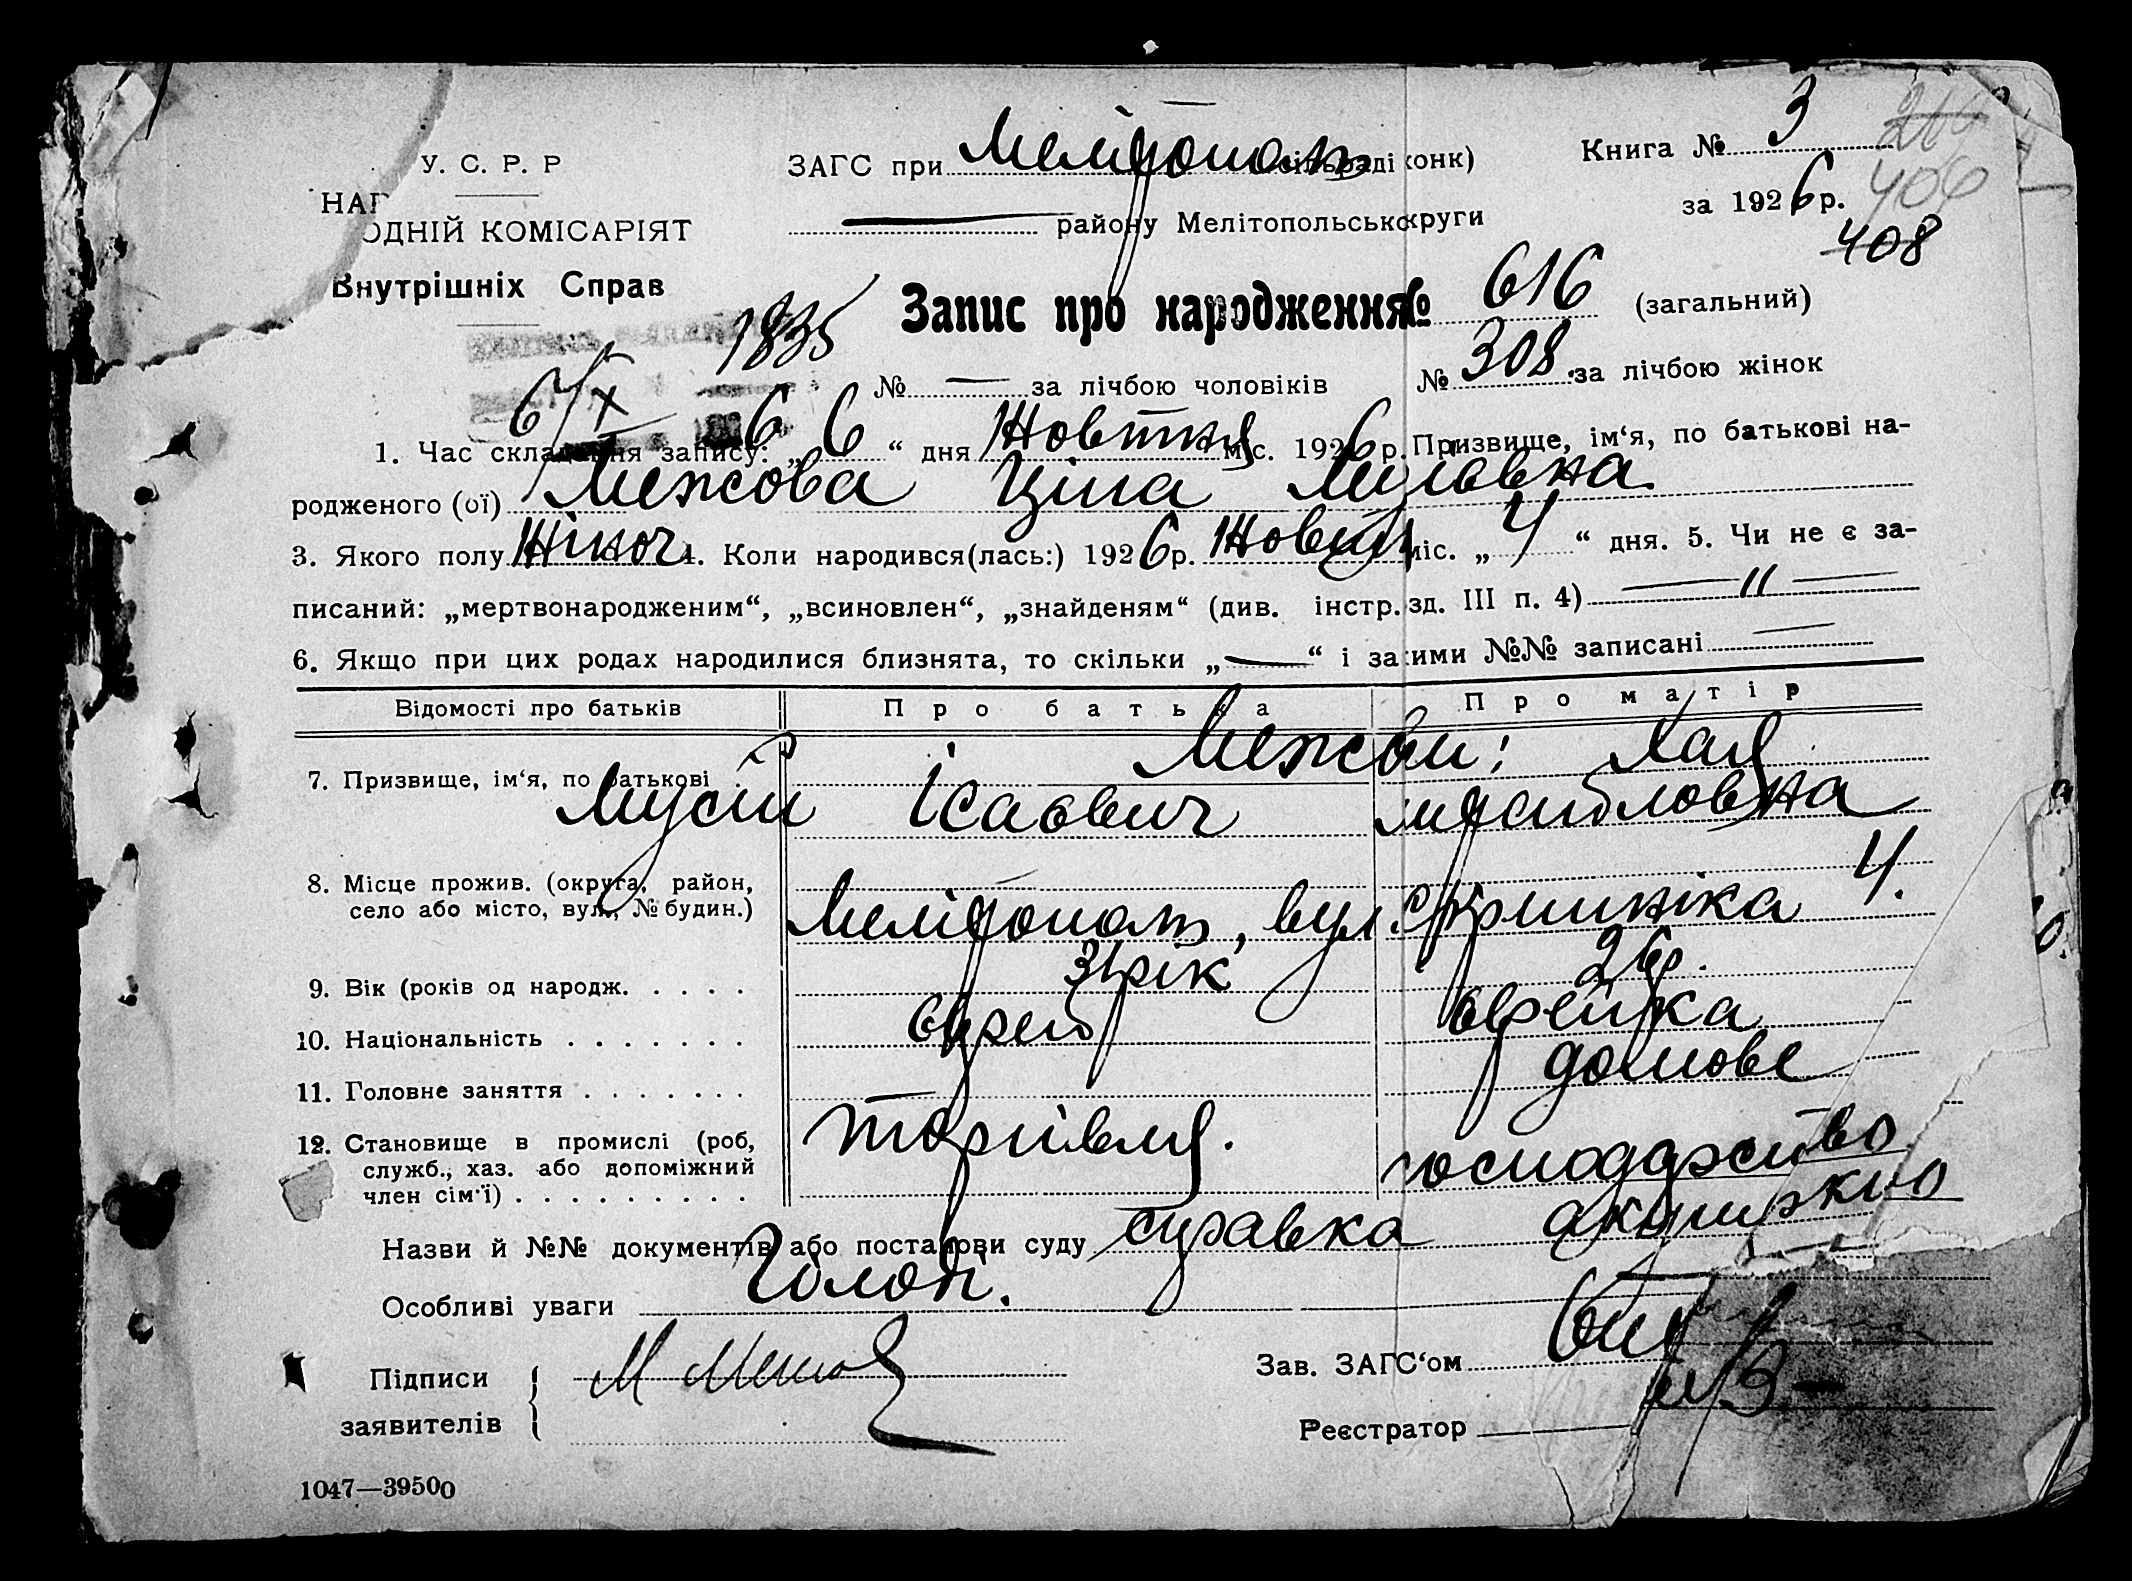 У. С. Р. Р
НАРОДНІЙ КОМІСАРІЯТ
Внутрішніх Справ
ЗАГС при Мелітополь сільраді конк)
— району Мелітопольсько округи
Книга № 3
за 1926 р.
406
408
1835
6/X 6
Запис про народження № 616 (загальний)
№ — за лічбою чоловіків № 308 за лічбою жінок
1. Час складення запису: „ 6 “ дня Жовтня міс. 1926 р. Призвище, ім‘я, по батькові на-
родженого (ої) Межова Ціля Мусіївна
3. Якого полу Жіноч 4. Коли народився(лась:) 1926 р. Жовтня міс. „ 4 “ дня. 5. Чи не є за-
писаний: „мертвонародженим“, „всиновлен“, „знайденям“ (див. інстр. зд. III п. 4) — " —
6. Якщо при цих родах народилися близнята, то скільки „ — “ і за ими №№ записані —
Відомості про батьків Про батька Про матір
7. Призвище, ім‘я, по батькові Межови: Хая
Мусій Ісаович
8. Місце прожив. (округа, район,
село або місто, вул., № будин.) Мелітополь, вул. 4.
9. Вік (років од народж. . . . . 31 рік 26 р.
10. Національність . . . . . . . єврей єврейка
11. Головне заняття . . . . . . . домове
12. Становище в промислі (роб, торгівля. господарство
служб., хаз. або допоміжний
член сім‘ї) . . . . . . . . .
Назви й №№ документів або постанови суду справка акушерки
Особливі уваги
Підписи
заявителів М Межов
Зав. ЗАГС‘ом
Реєстратор —
1047—39500